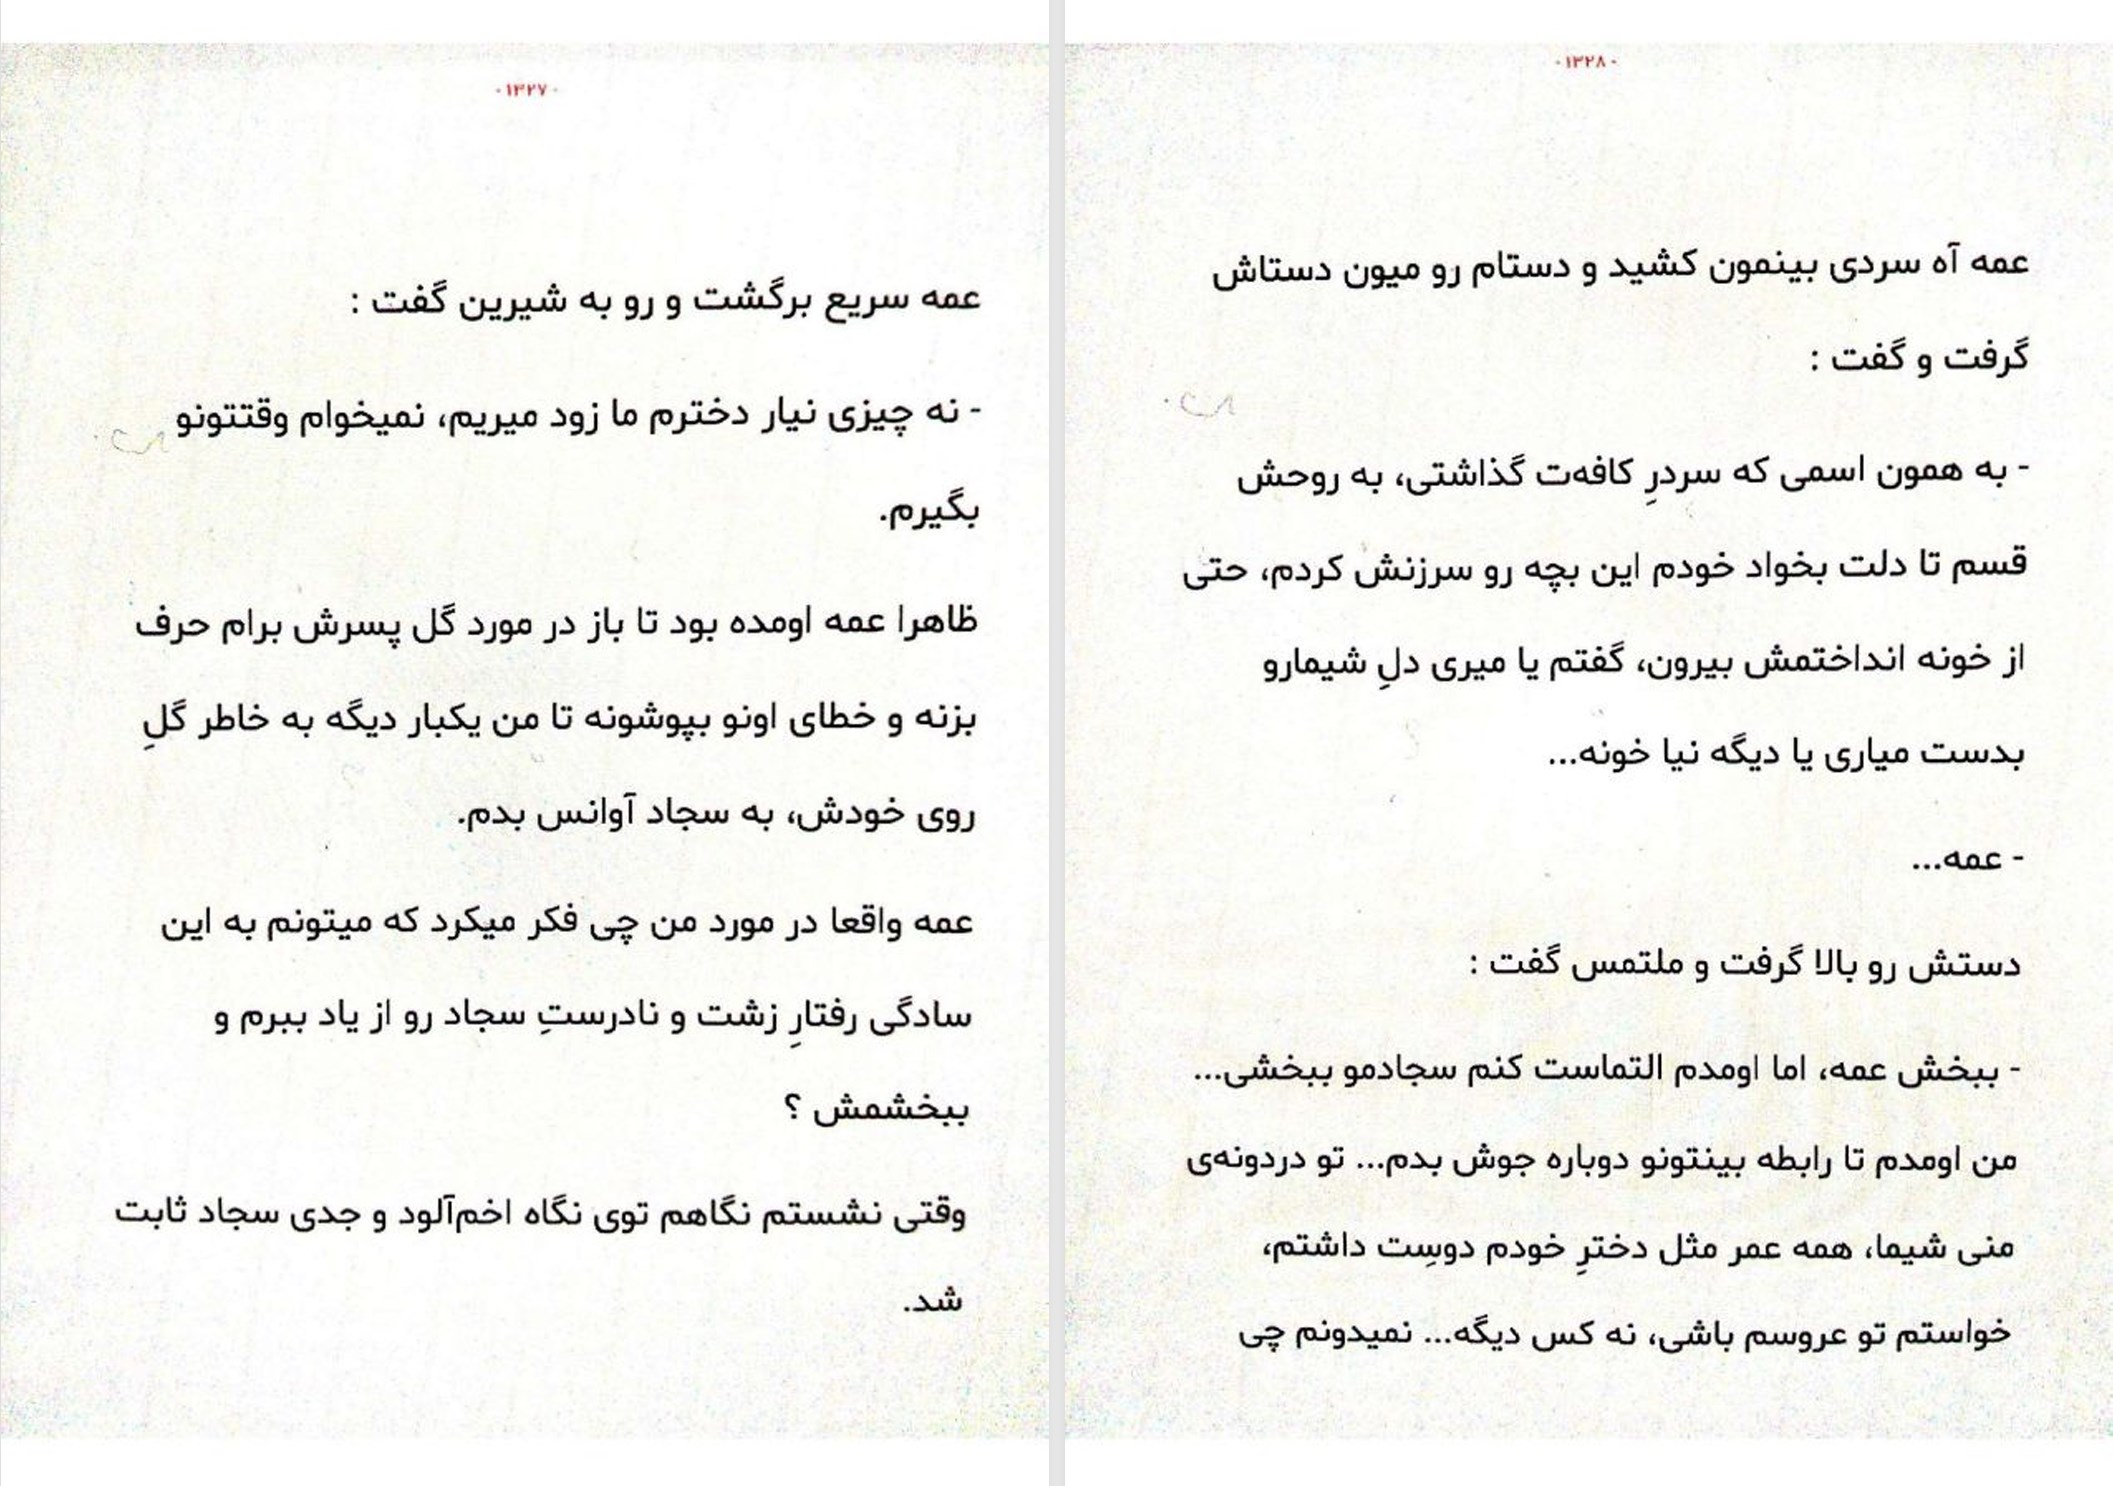 ۰۱۳۲۷۰
عمه سریع برگشت و رو به شیرین گفت :
- نه چیزی نیار دخترم ما زود میریم، نمیخوام وقتتونو
بگیرم.
ظاهرا عمه اومده بود تا باز در مورد گل پسرش برام حرف
بزنه و خطای اونو بپوشونه تا من یکبار دیگه به خاطر گلِ
روی خودش، به سجاد آوانس بدم.
عمه واقعا در مورد من چی فکر میکرد که میتونم به این
سادگی رفتارِ زشت و نادرستِ سجاد رو از یاد ببرم و
ببخشمش ؟
وقتی نشستم نگاهم توی نگاه اخم‌آلود و جدی سجاد ثابت
شد.
۰۱۳۲۸۰
عمه آه سردی بینمون کشید و دستام رو میون دستاش
گرفت و گفت :
- به همون اسمی که سردرِ کافه‌ت گذاشتی، به روحش
قسم تا دلت بخواد خودم این بچه رو سرزنش کردم، حتی
از خونه انداختمش بیرون، گفتم یا میری دلِ شیمارو
بدست میاری یا دیگه نیا خونه...
- عمه...
دستش رو بالا گرفت و ملتمس گفت :
- ببخش عمه، اما اومدم التماست کنم سجادمو ببخشی...
من اومدم تا رابطه بینتونو دوباره جوش بدم... تو دردونه‌ی
منی شیما، همه عمر مثل دخترِ خودم دوسِت داشتم،
خواستم تو عروسم باشی، نه کس دیگه... نمیدونم چی